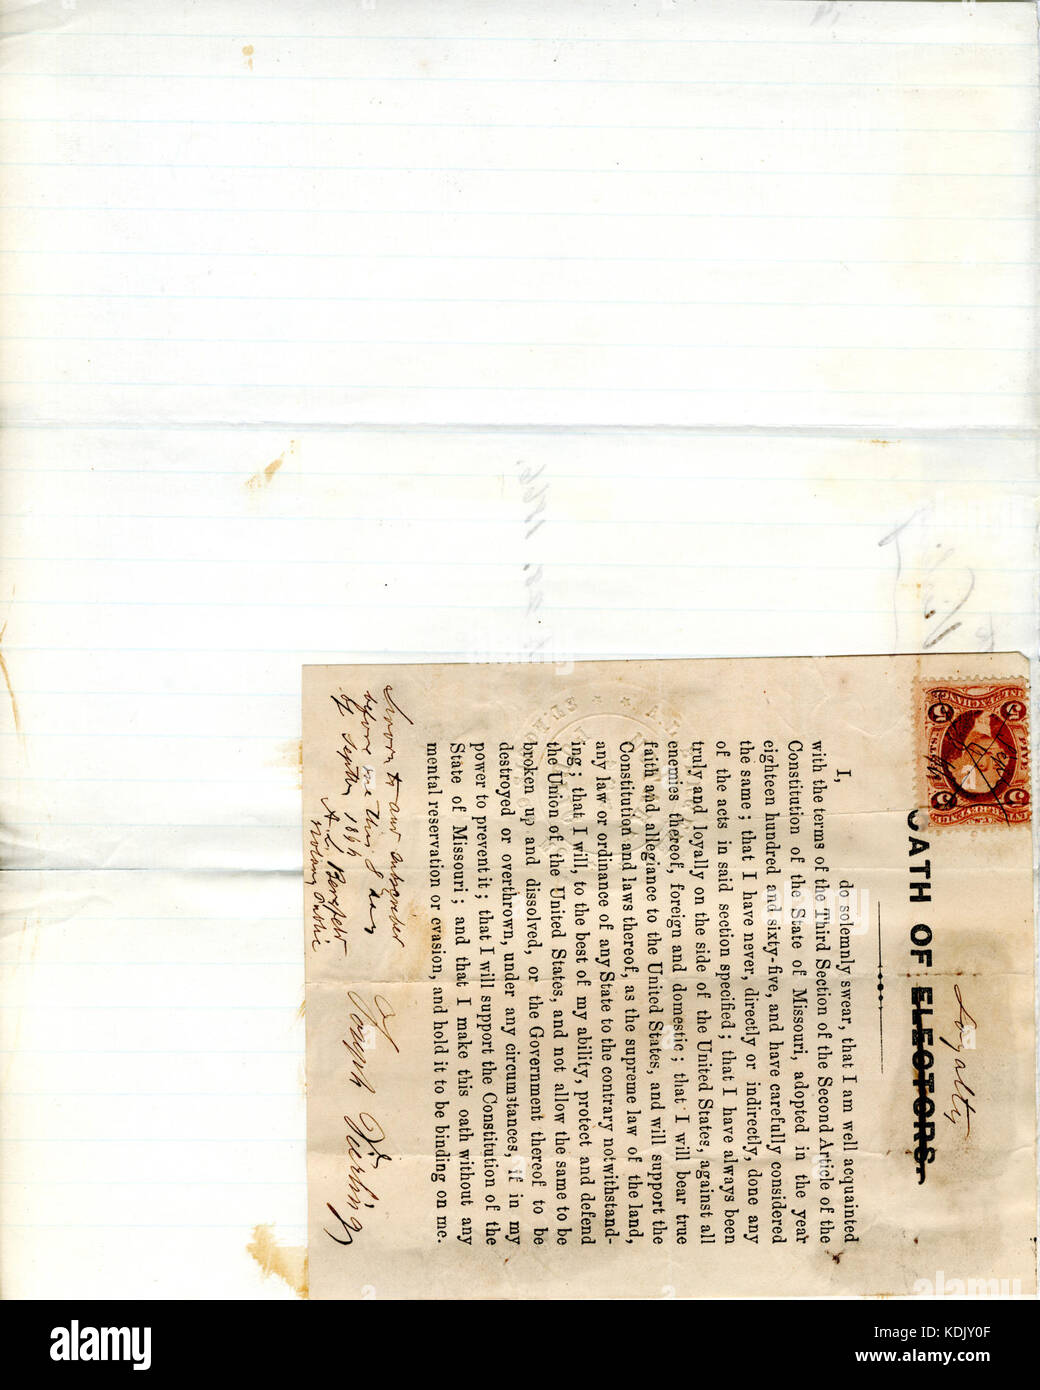 Loyalty
OATH OF ELECTORS.
I, do solemnly swear, that I am well acquainted
with the terms of the Third Section of the Second Article of the
Constitution of the State of Missouri, adopted in the year
eighteen hundred and sixty-five, and have carefully considered
the same; that I have never, directly or indirectly, done any
of the acts in said section specified; that I have always been
truly and loyally on the side of the United States, against all
enemies thereof, foreign and domestic; that I will bear true
faith and allegiance to the United States, and will support the
Constitution and laws thereof, as the supreme law of the land,
any law or ordinance of any State to the contrary notwithstand-
ing; that I will, to the best of my ability, protect and defend
the Union of the United States, and not allow the same to be
broken up and dissolved, or the Government thereof to be
destroyed or overthrown, under any circumstances, if in my
power to prevent it; that I will support the Constitution of the
State of Missouri; and that I make this oath without any
mental reservation or evasion, and hold it to be binding on me.
Sworn to and subscribed
before me this 8 day
of Septbr 1866
Notary Public
alamy
Image ID: KDJY0F
www.alamy.com